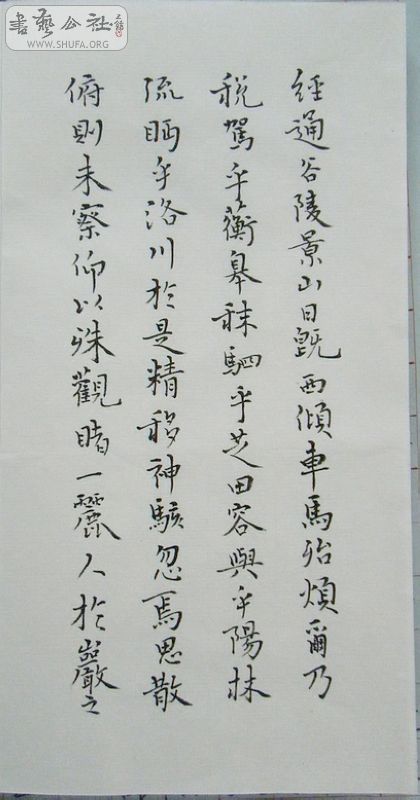 書藝公社
WWW.SHUFA.ORG
經通谷陵景山日既西傾車馬殆煩爾乃
税駕乎蘅皋秣駟乎芝田容與乎陽林
流眄乎洛川於是精移神駭忽焉思散
俯則未察仰以殊觀睹一麗人於巖之